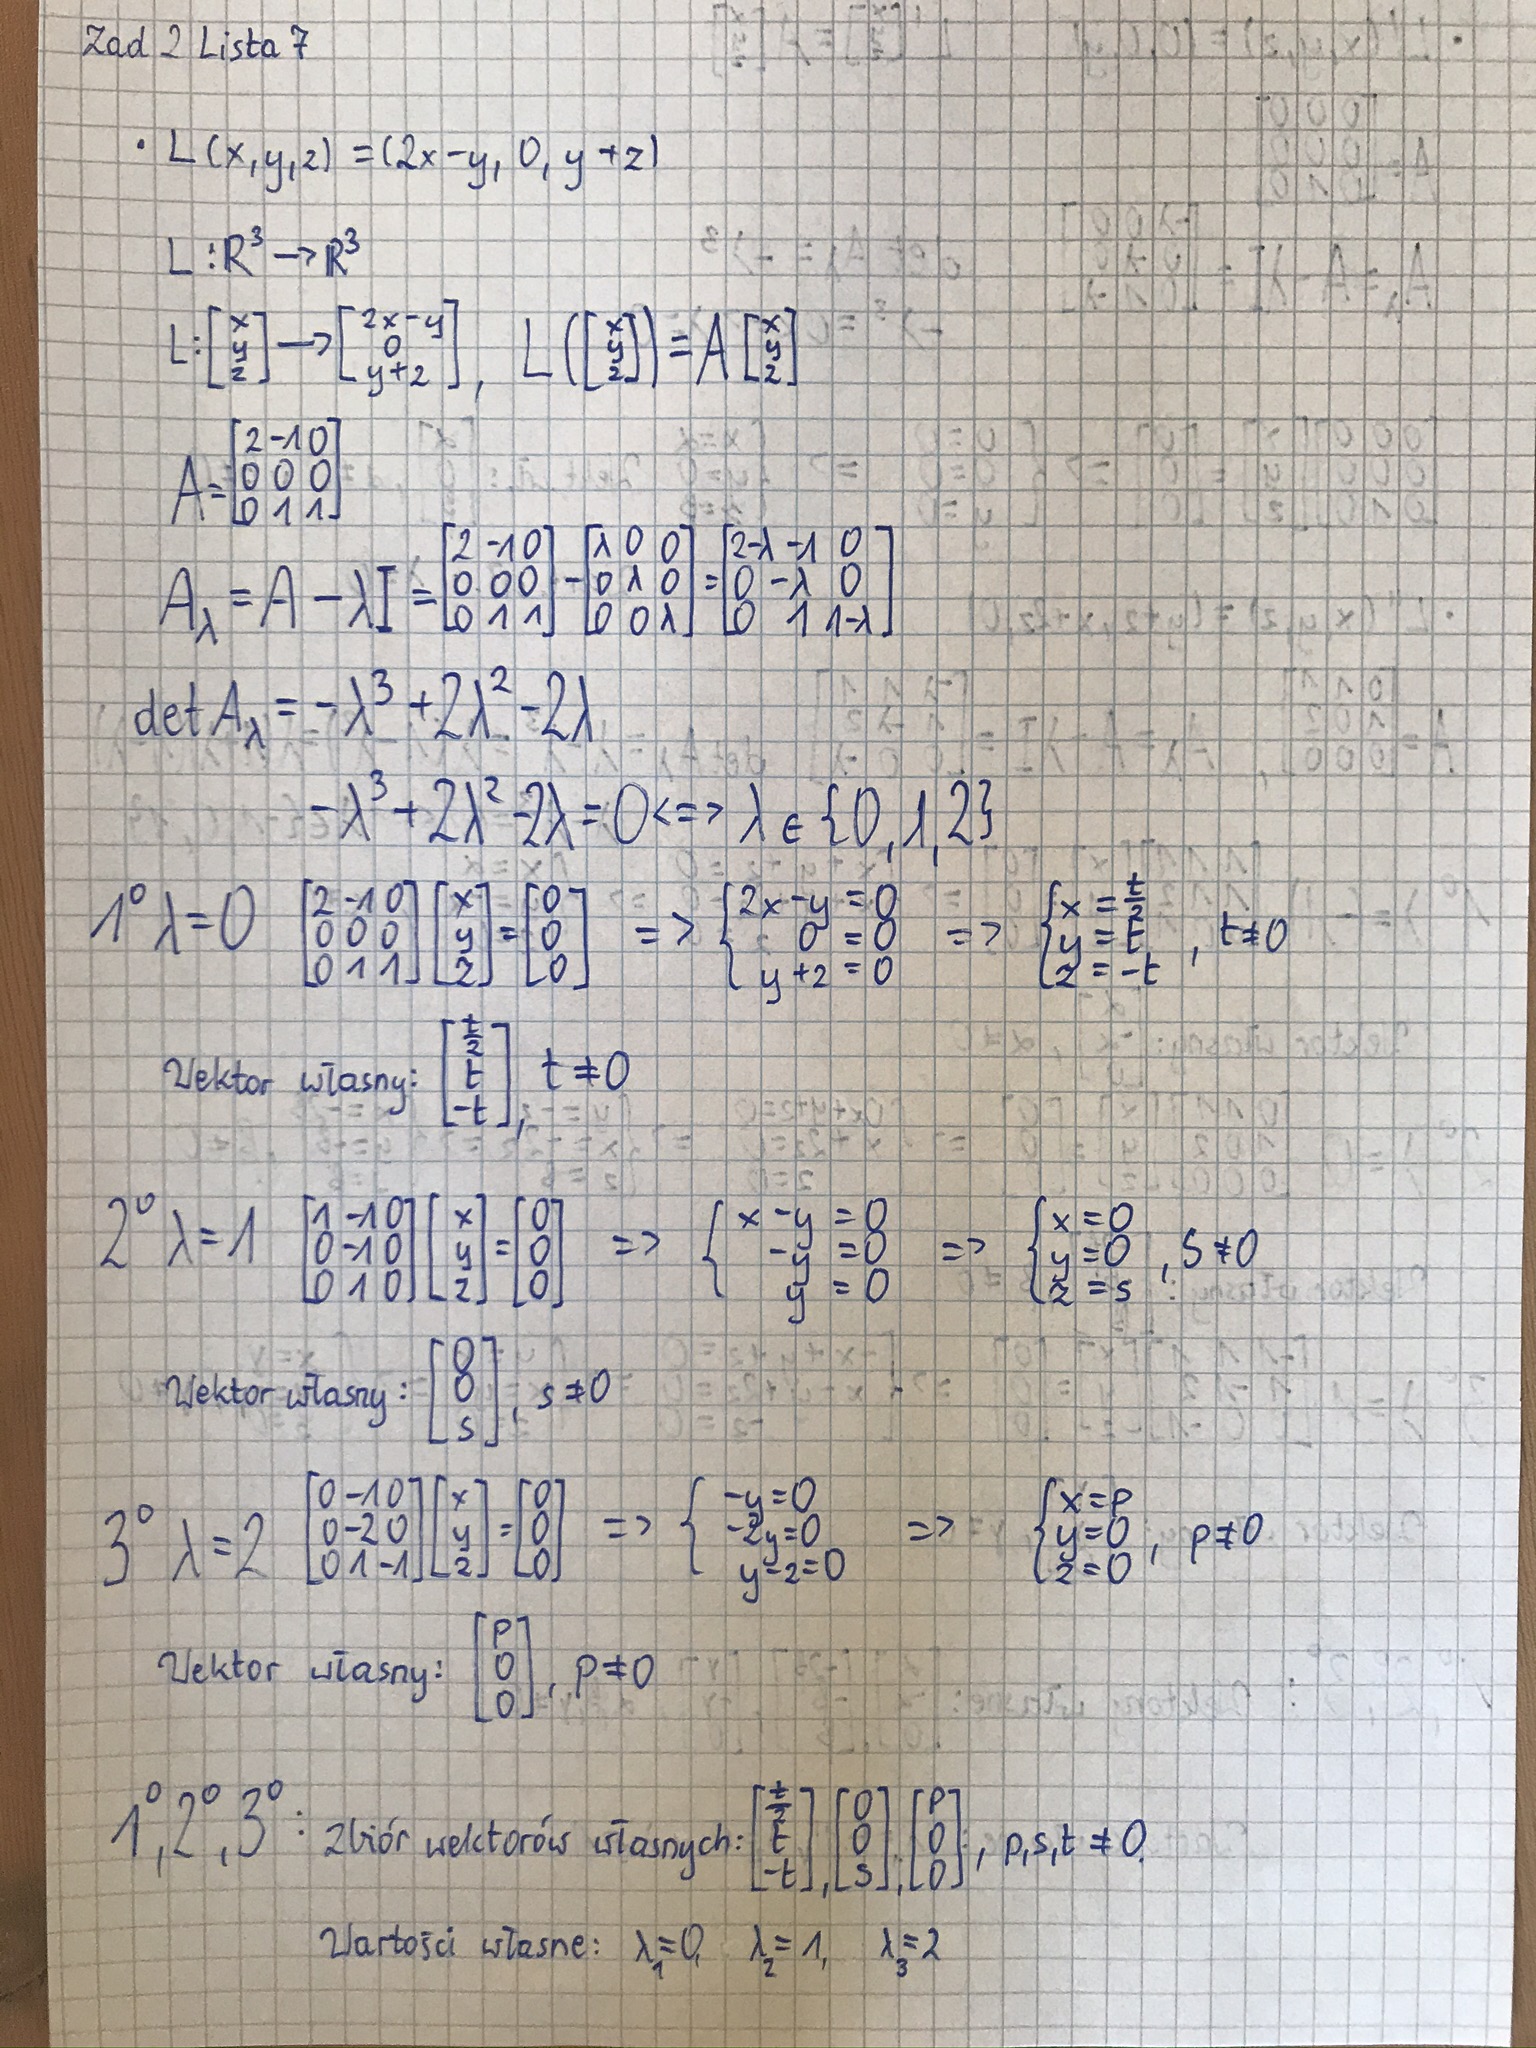 Zad 2 Lista 7
• L(x,y,z) = (2x-y, 0, y+z)
L: R³ → R³
L: [x y z] → [2x-y 0 y+z], L([x y z]) = A [x y z]
A = [2 -1 0 0 0 0 0 1 1]
A_λ = A - λI = [2 -1 0 0 0 0 0 1 1] - [λ 0 0 0 λ 0 0 0 λ] = [2-λ -1 0 0 -λ 0 0 1 1-λ]
det A_λ = -λ³ + 2λ² - 2λ
-λ³ + 2λ² - 2λ = 0 <=> λ ∈ {0, 1, 2}
1° λ=0 [2 -1 0 0 0 0 0 1 1] [x y z] = [0 0 0] => { 2x-y = 0 0 = 0 y+z = 0 => { x = t/2 y = t z = -t , t≠0
Wektor własny: [t/2 t -t], t≠0
2° λ=1 [1 -1 0 0 -1 0 0 1 0] [x y z] = [0 0 0] => { x-y = 0 -y = 0 y = 0 => { x=0 y=0 z=s , s≠0
Wektor własny: [0 0 s], s≠0
3° λ=2 [0 -1 0 0 -2 0 0 1 -1] [x y z] = [0 0 0] => { -y=0 -2y=0 y-z=0 => { x=p y=0 z=0 , p≠0
Wektor własny: [p 0 0], p≠0
1°, 2°, 3°: Zbiór wektorów własnych: [t/2 t -t], [0 0 s], [p 0 0], p,s,t ≠ 0.
Wartości własne: λ₁=0, λ₂=1, λ₃=2